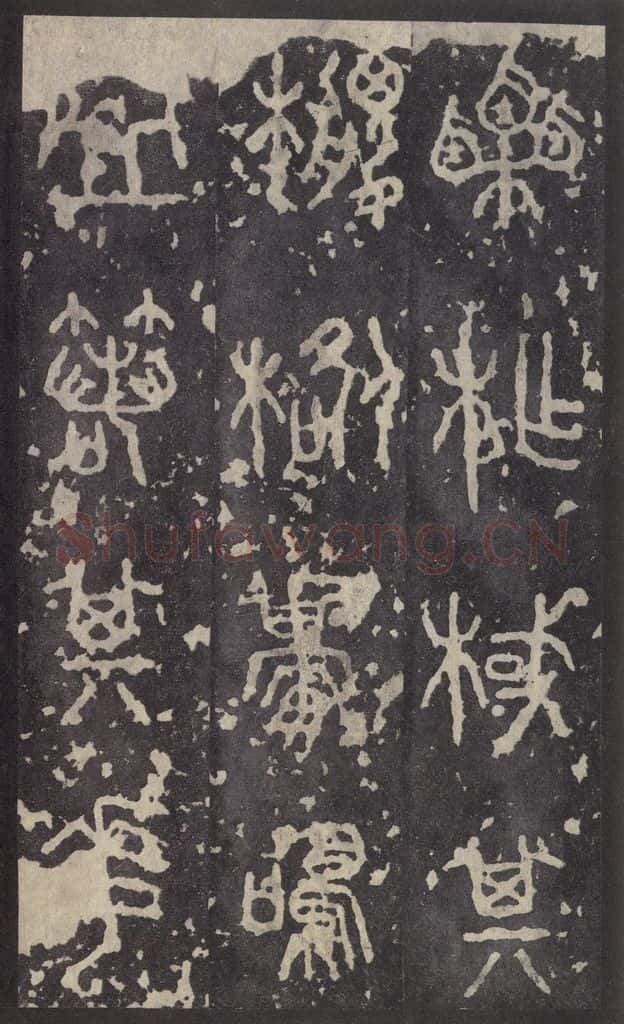 栗柞棫其
椶鳴
亞箬其華
Shufawang.CN